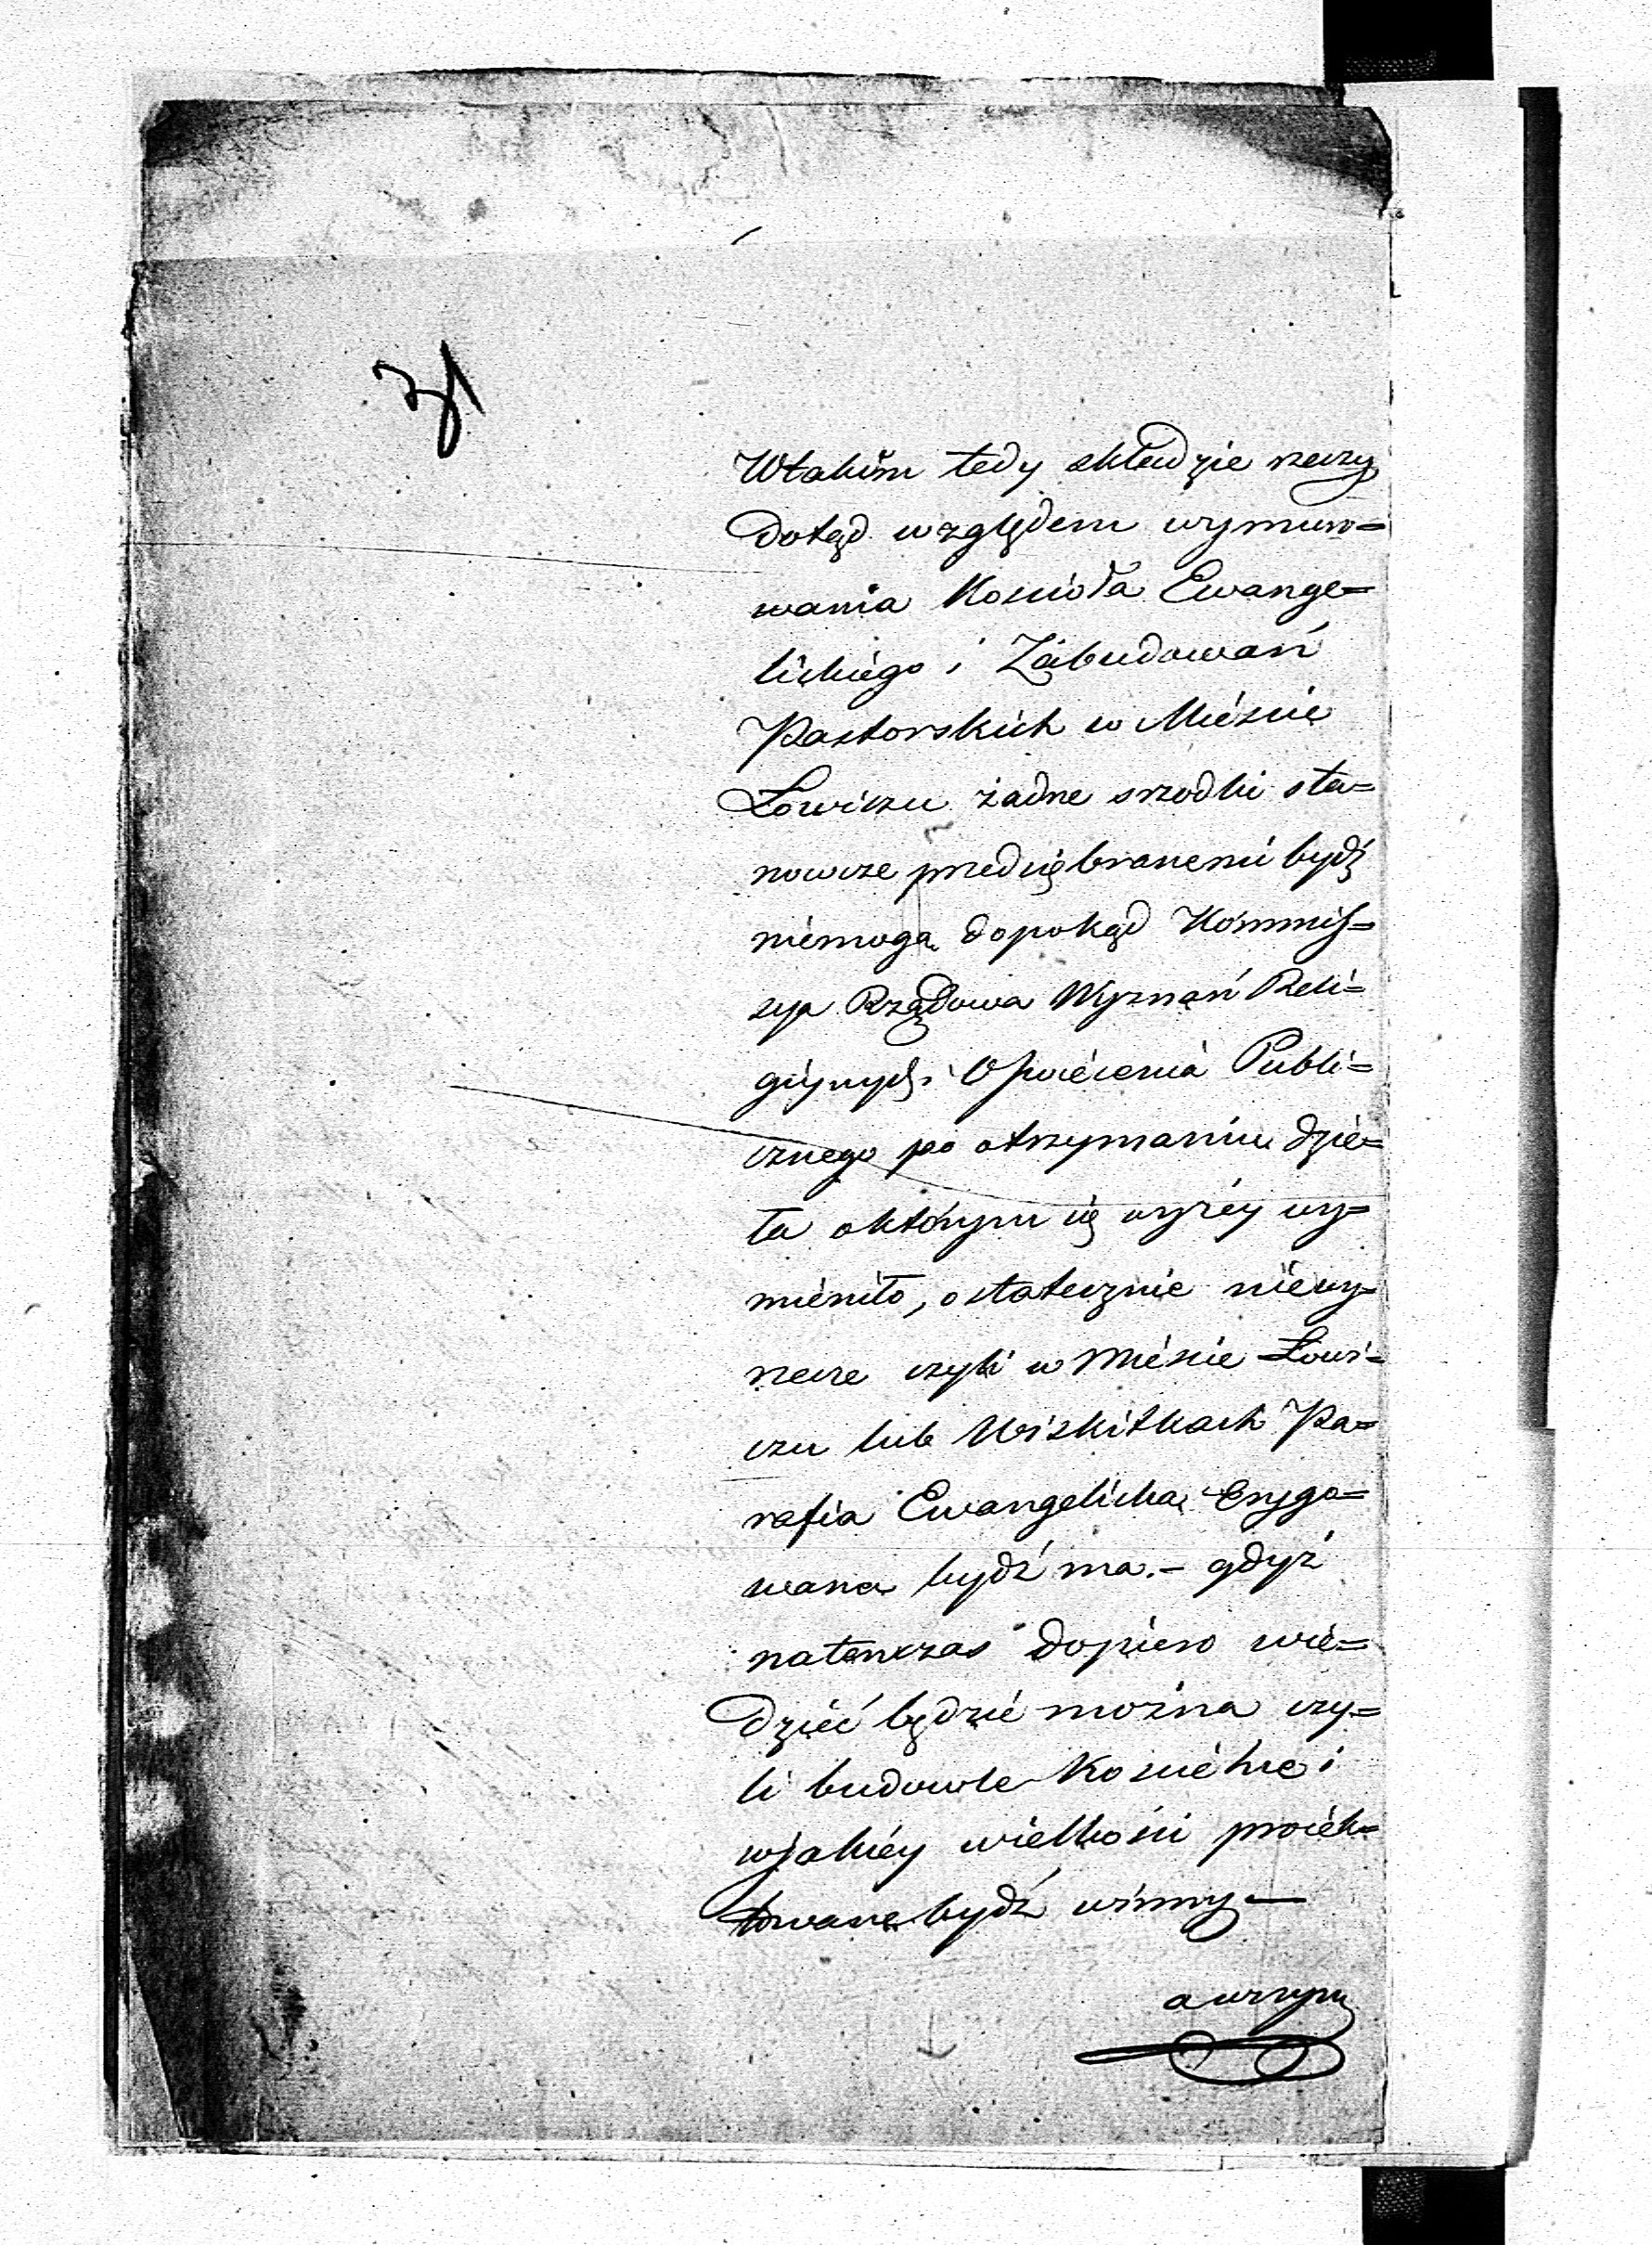 Wtakim tedy składzie rzeczy
dotąd względem wymuro=
wania Kościoła Ewange=
lickiego i Zabudowań
Pastorskich w Mieście
Łowiczu żadne srzodki sta=
nowcze przedsiębranemi bydź
niemogą dopokąd Kommis=
sya Rządowa Wyznań Reli=
giynych i Oświecenia Publi=
cznego po otrzymaniu dzie=
ła oktorym się wyżéy wy=
mieniło, ostatecznie niewy=
rzecze czyli w Mieście Łowi=
czu lub Wiskitkach Pa=
rafia Ewangelicka erygo=
wana bydź ma.– gdyż
natenczas dopiero wie=
dzieć będzie można czy=
li budowle Kościelne i
wjakiéy wielkości proiek=
towane bydź winny —